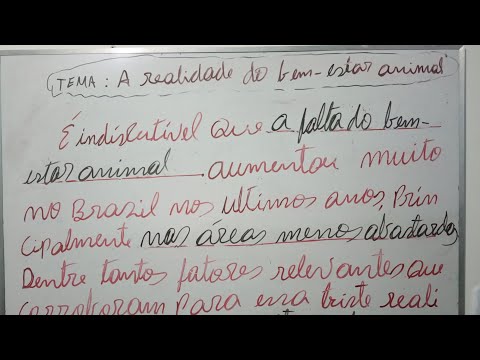 TEMA: A realidade do bem-estar animal
É indiscutível que a falta do bem-
estar animal aumentou muito
no Brasil nos ultimos anos, Prin
cipalmente nas áreas menos abastardas
Dentre tantos fatores relevantes que
corroboram para essa triste reali